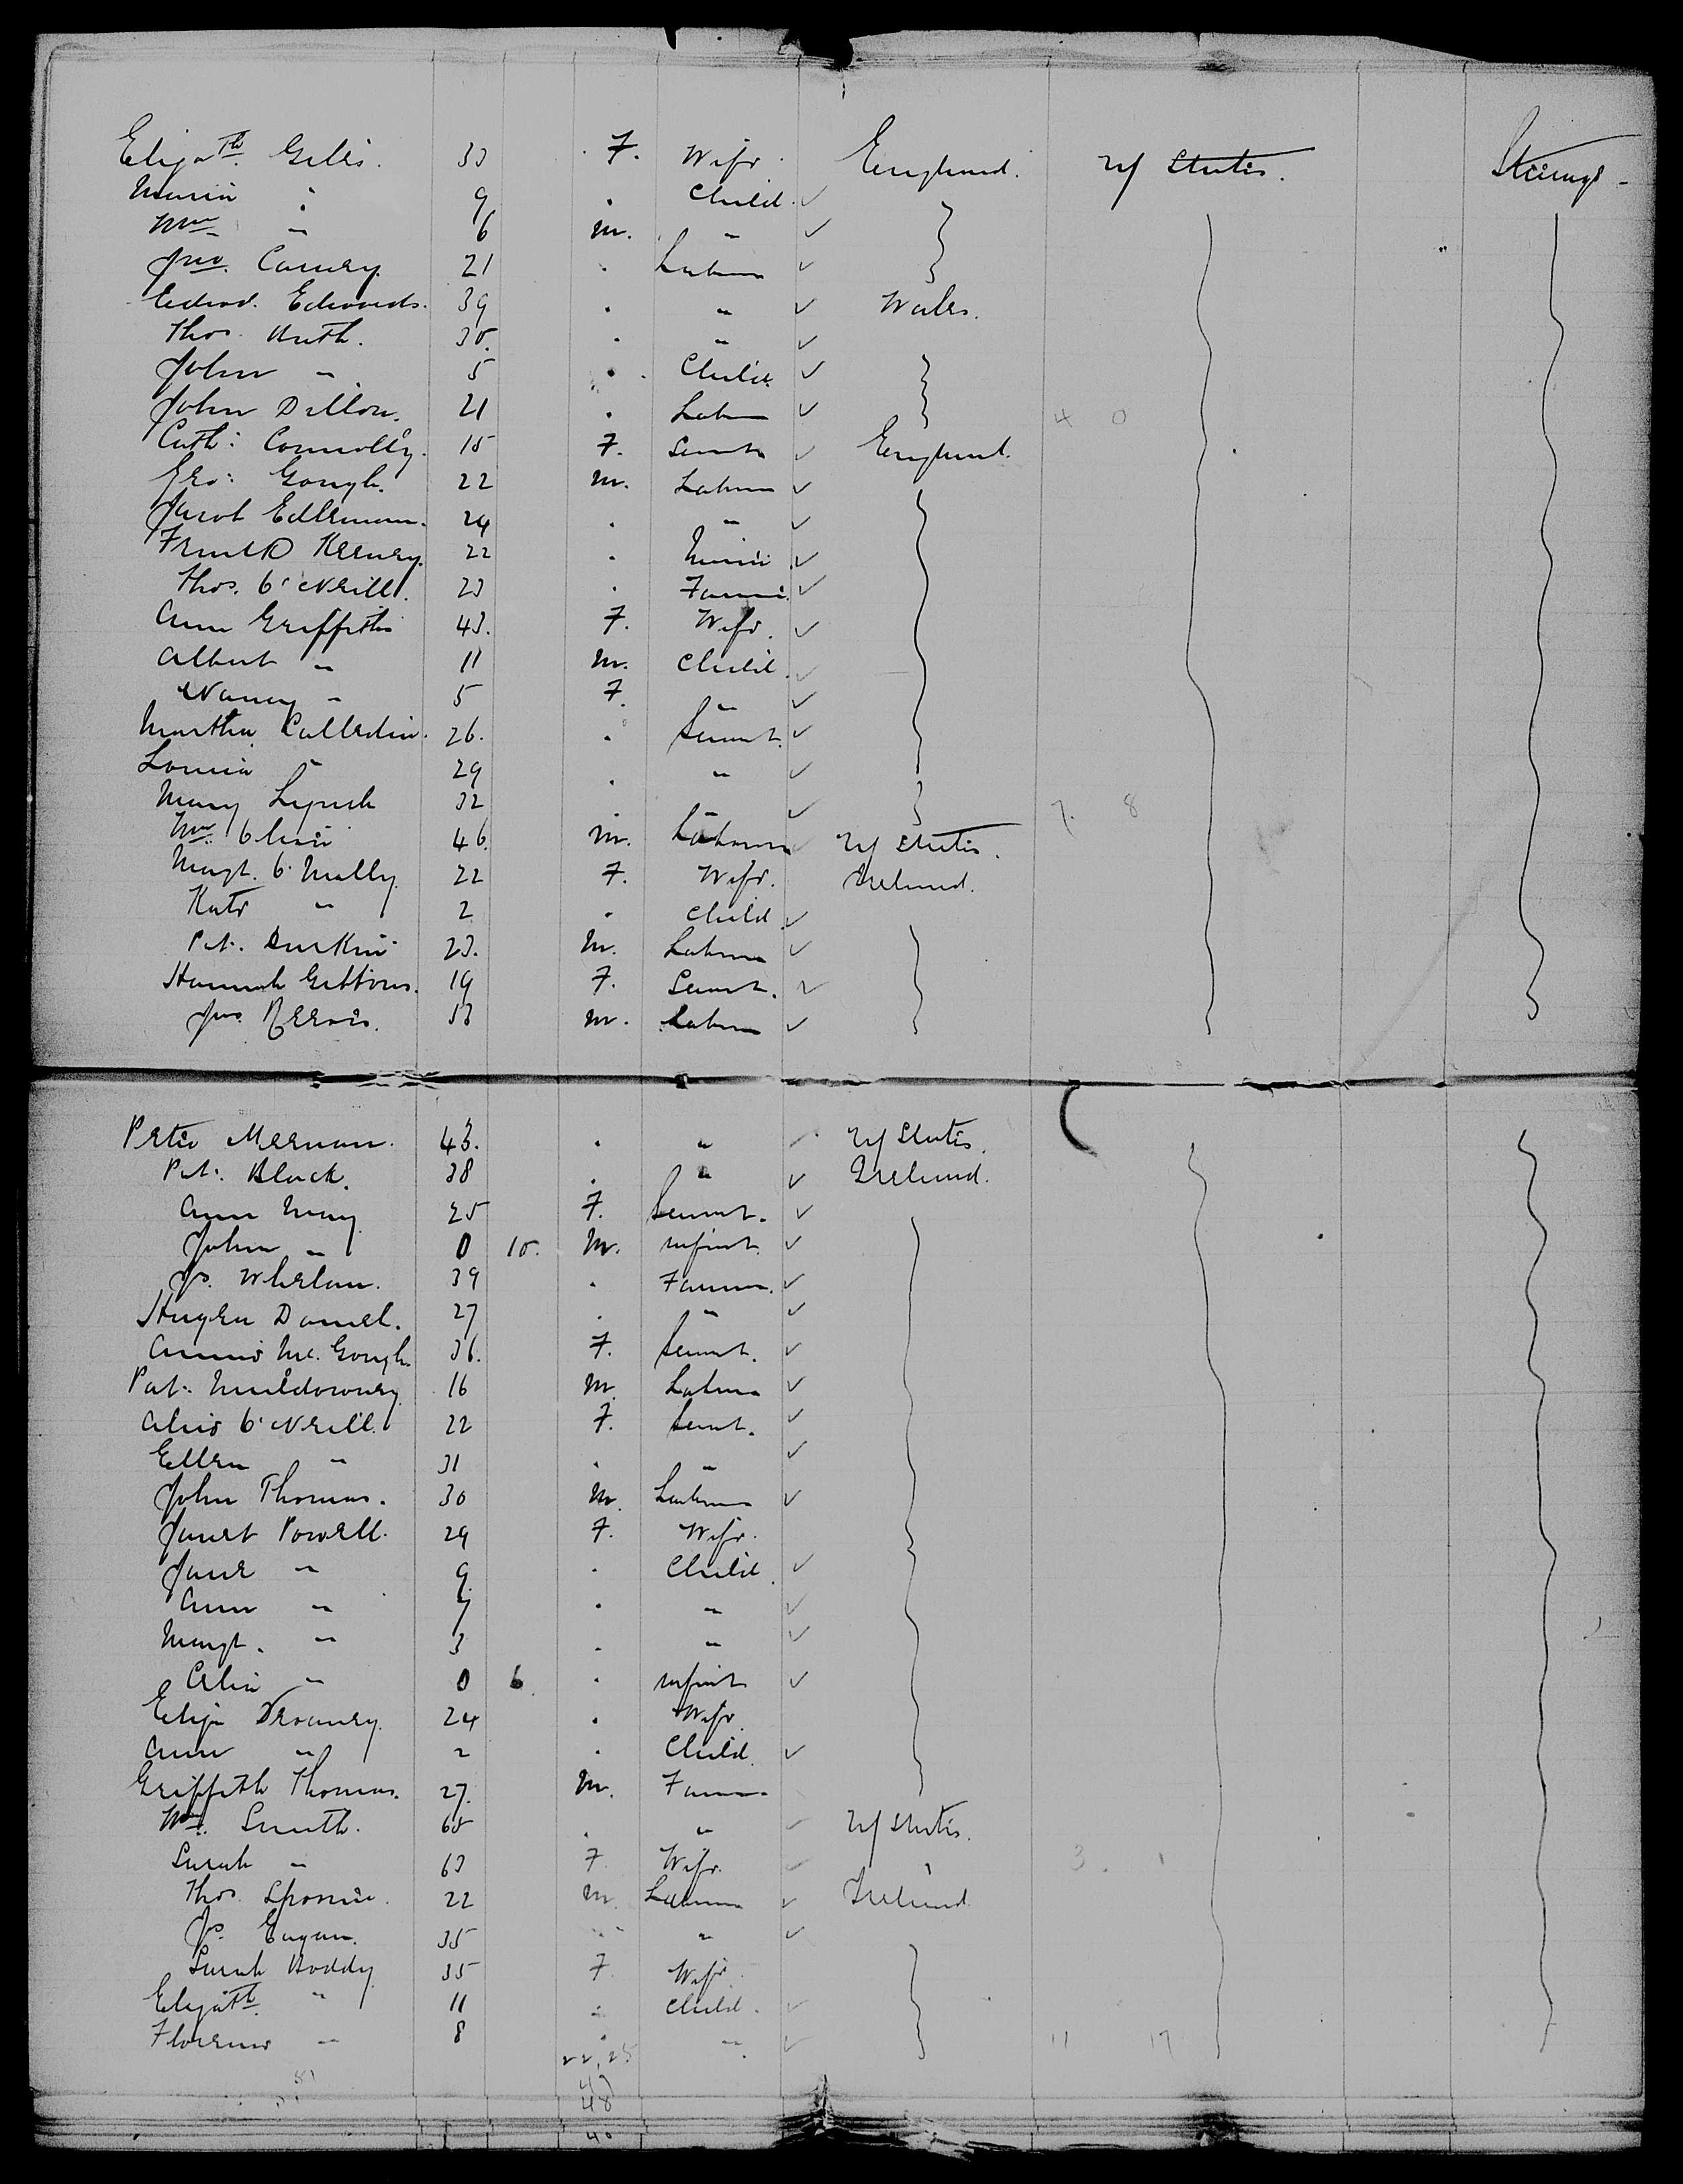 Elizath. Giles. 33 F. Wife England. U/ States. Steerage
Maria " 9 . Child
Wm " 6 M. "
Jno. Carney. 21 . Labour
Edwd. Edwards. 39 . " Wales.
Thos. 35. . "
John " 5 . Child
John Dillon. 21 . Labour 4 0
Cath: Connolly. 15 F. Servt England.
Geo: Gough. 22 M. Labour
Jacob Edleman. 24 . "
Frank Keeney. 22 . Miner
Thos. O'Neill. 23 . Farmer
Ann Griffiths 43. F. Wife.
Albert " 11 M. Child
Nancy " 5 F. "
Martha Calledin. 26. . Servant.
Louisa " 29 . "
Mary Lynch 32 . " 7. 8
Wm. 46. M. Labourer U/ States.
Margt. O'Mally 22 F. Wife. Ireland.
Kate " 2 . Child
Pat. Durkin 23. M. Labour
Hannah Gibbons. 19 F. Servant.
Jno. 53 M. Labour
Peter Meenan. 43. . " U/ States.
Pat. Black. 38 . " Ireland.
Ann May 25 F. Servant.
John " 0 10. M. Infant
Js. Whelan. 39 . Farmer.
Daniel. 27 . "
Annie Mc. Gough 36. F. Servant.
Pat. Muldowney 16 M. Labour
Alice O'Neill. 22 F. Servt.
Ellen " 31 . "
John Thomas. 30 M. Labour
Janet Powell. 29 F. Wife.
Jane " 9. . Child
Ann " 7 . "
Margt. " 3 . "
Celia " 0 6. . Infant
Eliza Drowney. 24 . Wife
Ann " 2 . Child
Griffith Thomas. 27. M. Farmer
Wm. Smith. 65 . " U/ States.
Sarah " 63 F Wife. " 3. 1
Thos. 22 M Labour Ireland
Js. Eagan. 35 " "
Sarah Boddy 35 F Wife
Elizath. " 11 . Child.
Florence " 8 . " 11 17
22, 25
48
40